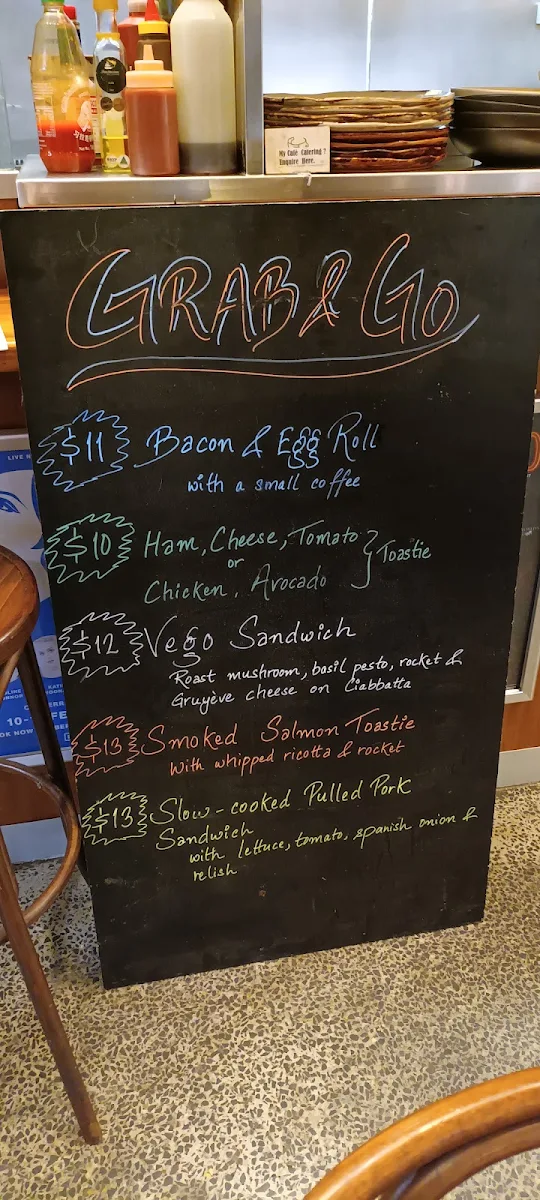 My Café Catering?
Enquire Here.
GRAB & GO
$11 Bacon & Egg Roll
with a small coffee
$10 Ham, Cheese, Tomato } Toastie
or
Chicken, Avocado
$12 Vego Sandwich
Roast mushroom, basil pesto, rocket &
Gruyève cheese on Ciabbatta
$13 Smoked Salmon Toastie
With whipped ricotta & rocket
$13 Slow-cooked Pulled Pork
Sandwich
with lettuce, tomato, spanish onion &
relish
LIVE
10-